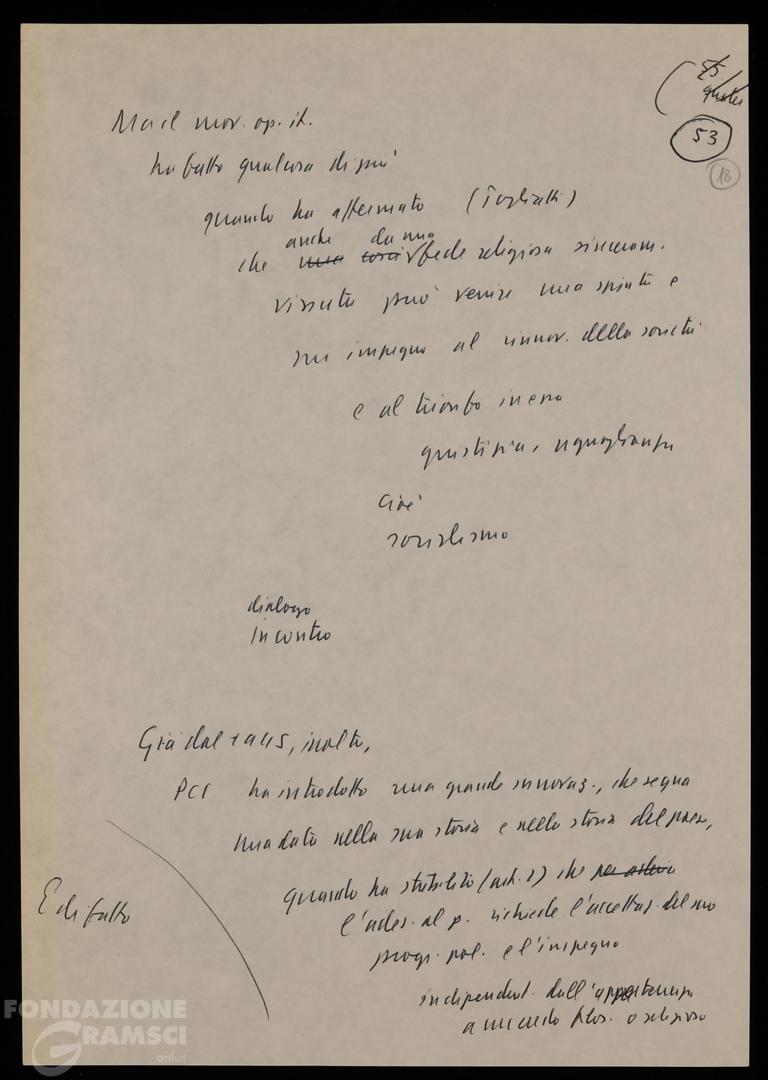 53
18
Ma il mov. op. it.
ha fatto qualcosa di più
quando ha affermato (Togliatti)
anche da una
che una così fede religiosa sinceram.
vissuta può venire una spinta e
un impegno al rinnov. della società
e al trionfo in essa
giustizia, uguaglianza
cioè
socialismo
dialogo
incontro
Già dal 1945, inoltre,
PCI ha introdotto una grande innovaz., che segna
una data nella sua storia e nella storia del paese,
quando ha stabilito (art. 2) che per
E di fatto
l'ades. al p. richiede l'accettaz. del suo
progr. pol. e l'impegno
indipendent. dall'appartenenza
a un credo filos. o religioso
FONDAZIONE
GRAMSCI
onlus